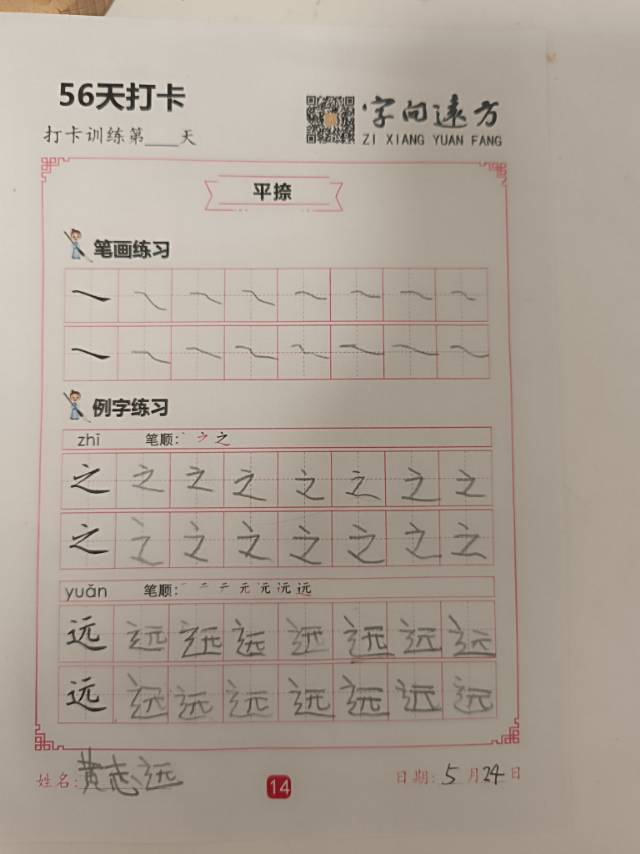 56天打卡
打卡训练第___天
字向远方
ZI XIANG YUAN FANG
平捺
笔画练习
例字练习
zhī 笔顺: 丶 ㇇ 之
之 之 之 之 之 之 之 之
之 之 之 之 之 之 之 之
yuǎn 笔顺: 一 二 テ 元 元 沅 远
远 远 远 远 远 远 远 远
远 远 远 远 远 远 远 远
姓名: 黄志远
14
日期: 5 月 24 日